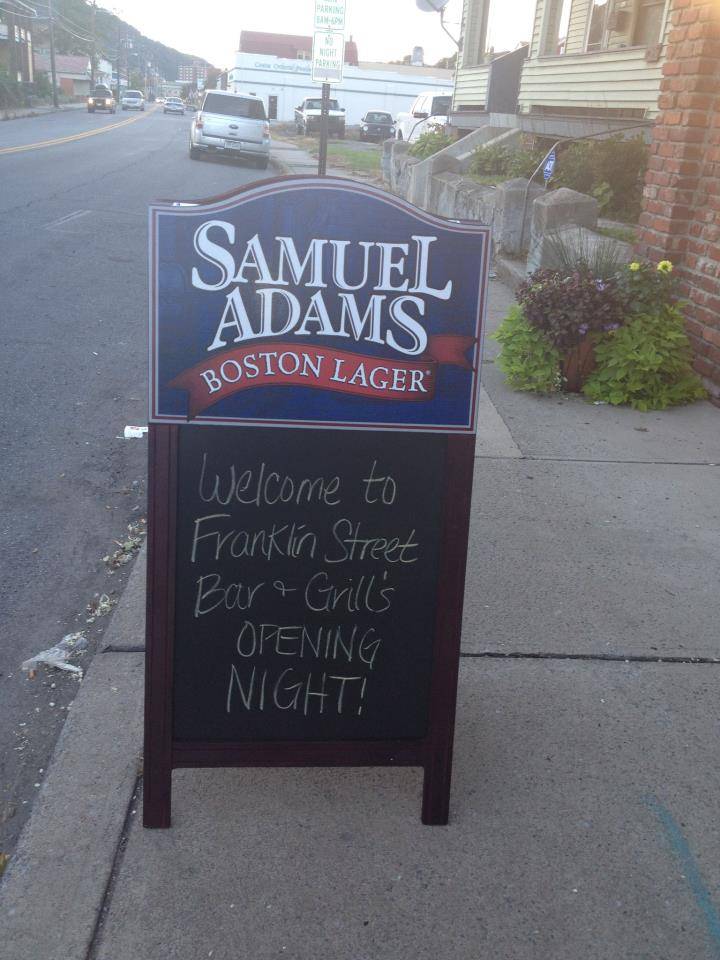 PARKING
8AM-6PM
NO
NIGHT
PARKING
SAMUEL
ADAMS
BOSTON LAGER®
Welcome to
Franklin Street
Bar & Grill's
OPENING
NIGHT!